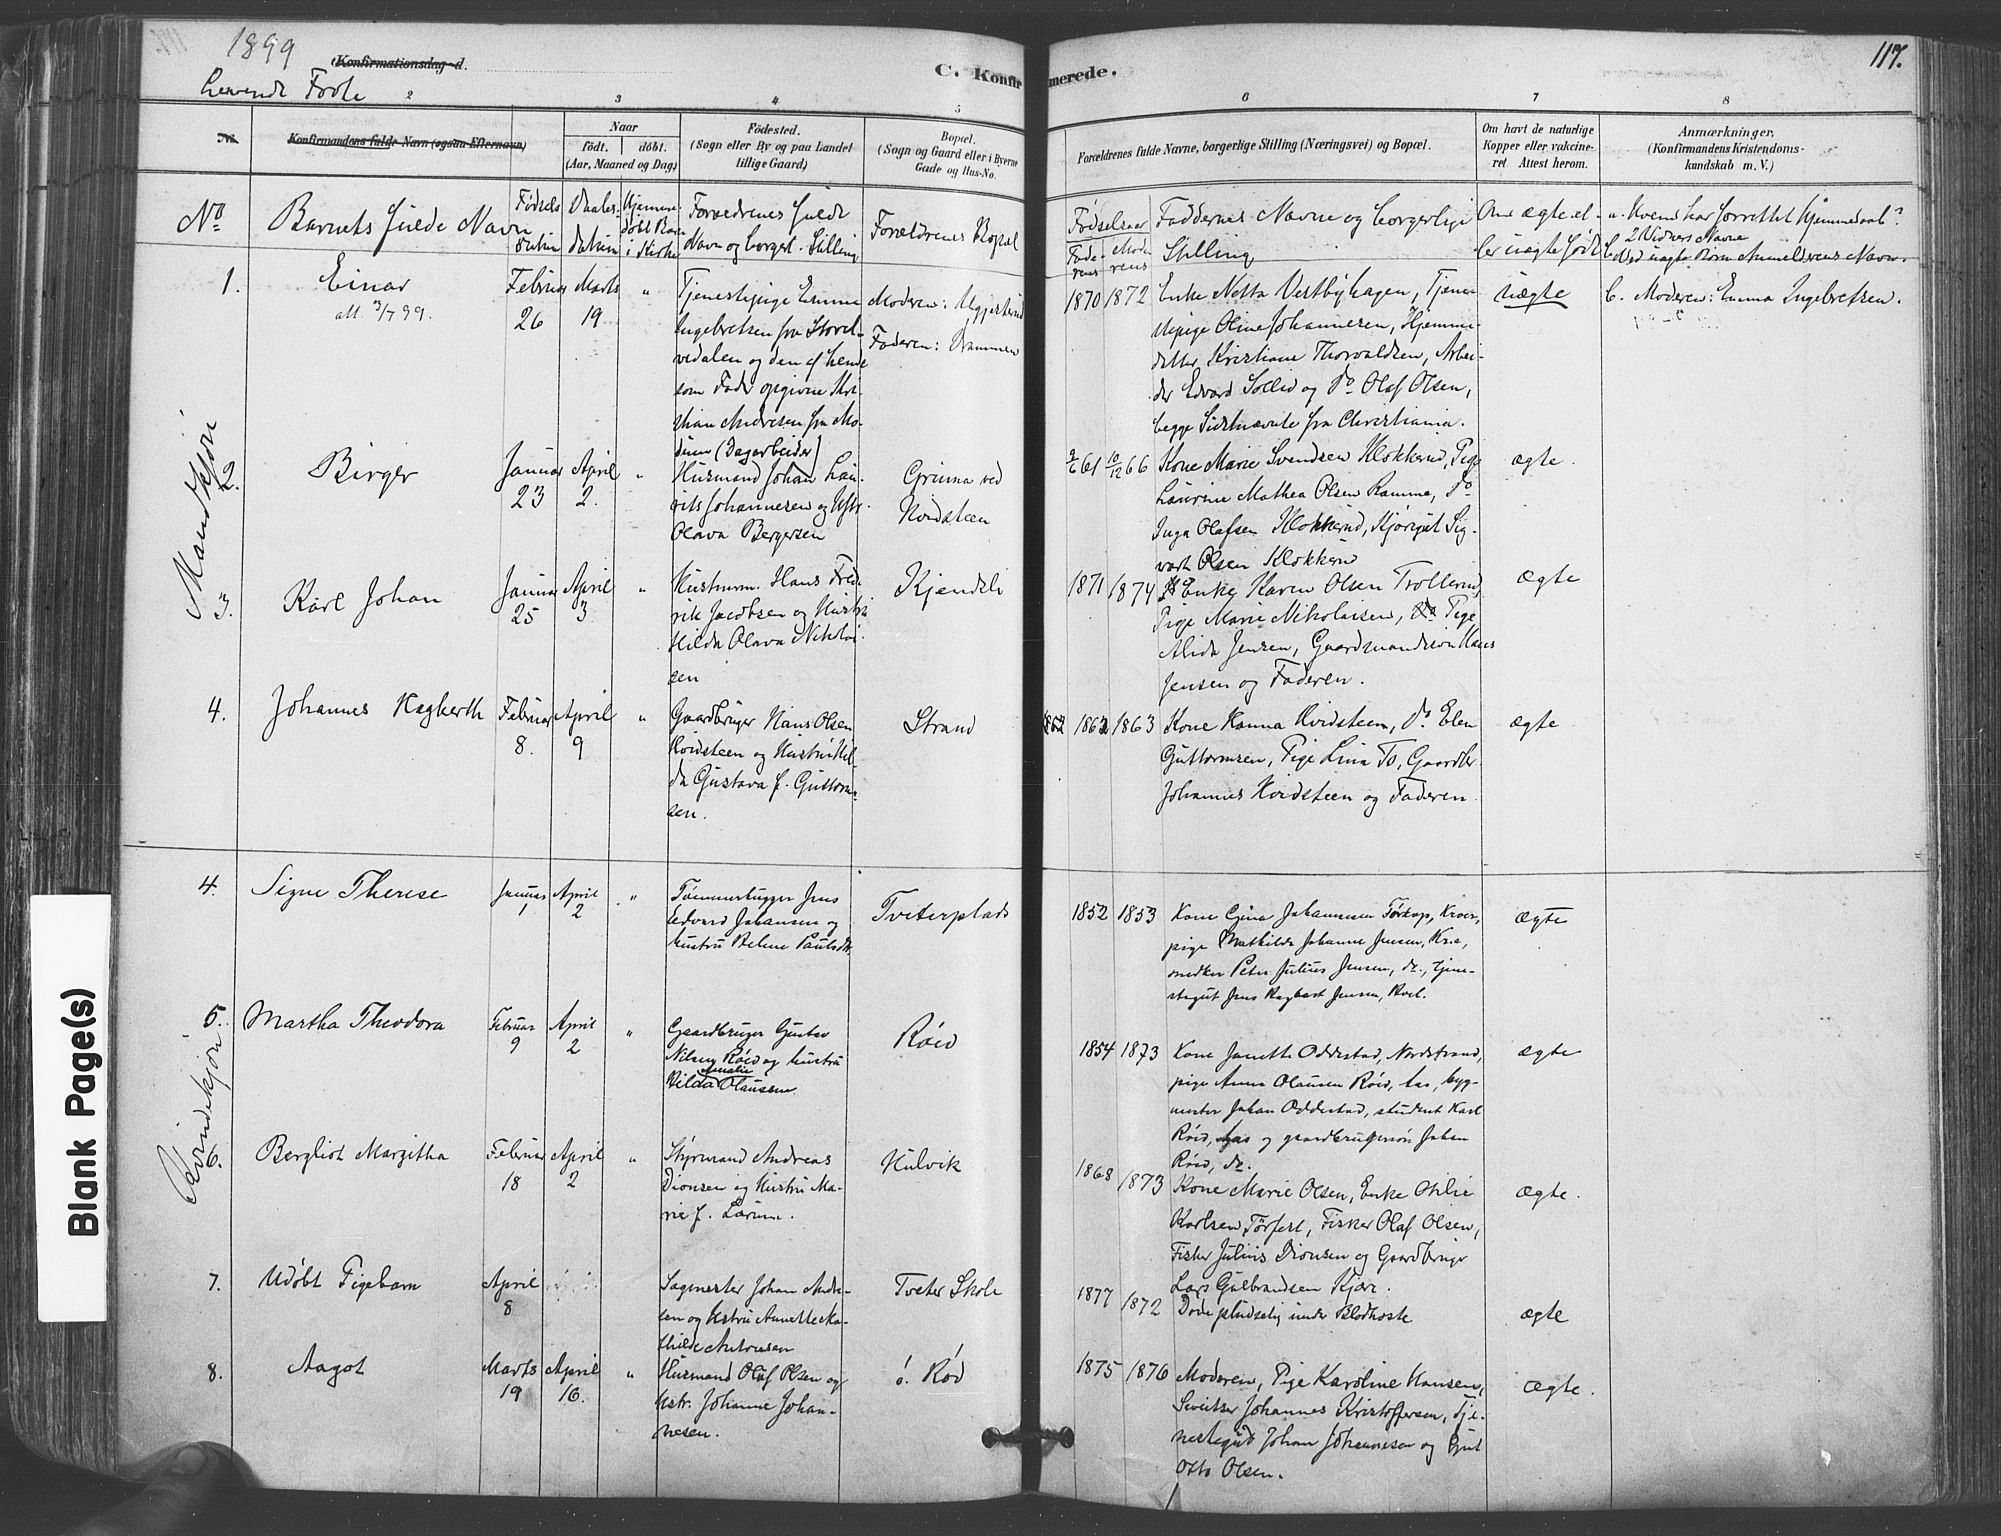 1899
Konfirmationsdag d.
Levende Fødte
C. Konfirmerede.
117.
2 3 4 5 6 7 8
No.
Konfirmandens fulde Navn (ogsaa Efternavn)
Naar
født. døbt.
(Aar, Maaned og Dag)
Fødested.
(Sogn eller By og paa Landet
tillige Gaard)
Bopæl.
(Sogn og Gaard eller i Byerne
Gade og Hus-No.
Forældrenes fulde Navne, borgerlige Stilling (Næringsvei) og Bopæl.
Om havt de naturlige
Kopper eller vakcine-
ret Attest herom.
Anmærkninger.
(Konfirmandens Kristendoms-
kundskab m. V.)
No
Barnets fulde Navn
Fødsels
datum
Daabs-
datum
Hjemme-
døbt Barn
i Kirke
Forældrenes fulde
Navn og borgerl. Stilling
Forældrenes Bopæl
Fødselsaar
Fade-
rens
Mode-
rens
Faddernes Navne og borgerlige
Stilling
Om ægte el-
ler uægte født
a. Hvem har forrettet Hjemmedaab?
2 Vidners Navne
b. Ved uægte Børn Anmelderens Navn.
Mandkjøn
1.
Einar
att. 3/7 99.
Februar
26
Marts
19
"
Tjenestepige Emma
Ingebretsen fra
og den af hende
som Fader opgivne Kri-
stian Andresen fra Mo-
dum (Dagarbeider)
Moderen:
Faderen: Drammen
1870 1872
Enke Netta Vestbyhagen, Tjene-
stepige Oline Johannesen, Hjemme-
datter Kristiane Thorvaldsen, Arbei-
der Edvard Sollid og do Olaf Olsen,
begge Sidstnævnte fra Christiania.
uægte
b. Moderen: Emma Ingebretsen.
2.
Birger
Januar
23
April
2.
"
Husmand Johan Lau-
rits Johannesen og Hstr.
Olava Bergersen
Grima ved
Hvidsteen
2/6 61 10/12 66
Kone Marie Svendsen Klokkerud, Pige
Laurine Mathea Olsen Ramme, do
Inga Olafsen Klokkerud, Sig-
vart Olsen Klokkerud
ægte.
3.
Karl Johan
Januar
25
April
3
"
Hans Fred-
rik Jacobsen og Hustru
Hilda Olava Nikolai-
sen
Kjendsli
1871 1874
Enke Karen Olsen Trollerud,
Pige Marie Nikolaisen, Pige
Alida Jensen, Gaardmandssøn Hans
Jensen og Faderen.
ægte
4.
Johannes Hagbarth
Februar
8.
April
9
"
Gaardbruger Hans Olsen
Hvidsteen og Hustru Hil-
da Gustava f. Guttorm-
sen.
Strand
1862 1863
Kone Hanna Hvidsteen, do Elen
Guttormsen, Pige Lina To, Gaardbr.
Johannes Hvidsteen og Faderen.
ægte
Kvindekjøn
4.
Signe Therese
Januar
1
April
2
"
Tømmerhugger Jens
Edvard Johansen og
hustru Helene Paulsdtr.
Tveterplads
1852 1853
Kone Gina Johannesen Førkop, Kroer,
pige Mathilde Johanne Jensen, Kr.a,
snedker Peter Julius Jensen, do., tjene-
stegut Jens Hagbart Jensen,
ægte
5.
Martha Theodora
Februar
9
April
2
"
Gaardbruger Gustav
Nilsen Røed og hustru
Amalie
Hilda Olaussen
Røed
1854 1873
Kone Janette Oddestad, Nordstrand,
pige Anna Olausen Røed, Aas, byg-
mester Johan Oddestad, student Karl
Røed, Aas og gaardbrugersøn Johan
Røed, do.
ægte
6.
Bergliot Margitha
Februar
18
April
2
"
Styrmand Andreas
Dionsen og Hustru Ma-
rie f. Larsen.
Hulvik
1868 1873
Kone Marie Olsen, Enke Otilie
Karlsen Tørfest, Fisker Olaf Olsen,
Fisker Julius Dionsen og Gaardbruger
Lars Gulbrandsen Kjær.
ægte.
7.
Udøbt Pigebarn
April
8
Sagmester Johan Andre-
sen og Hstru Annette Ma-
thilde Antonsen
Tveter Skole
1877 1872
Døde pludselig under Blodhoste
ægte
8.
Aagot
Marts
19
April
16.
"
Husmand Olaf Olsen og
Hstr. Johanne Johan-
nesen.
ó. Rød
1875 1876
Moderen, Pige Karoline Hansen,
Sveitser Johannes Kristoffersen, Tje-
nestegut Johan Johannesen og Gut
Otto Olsen.
ægte.
Blank Page(s)